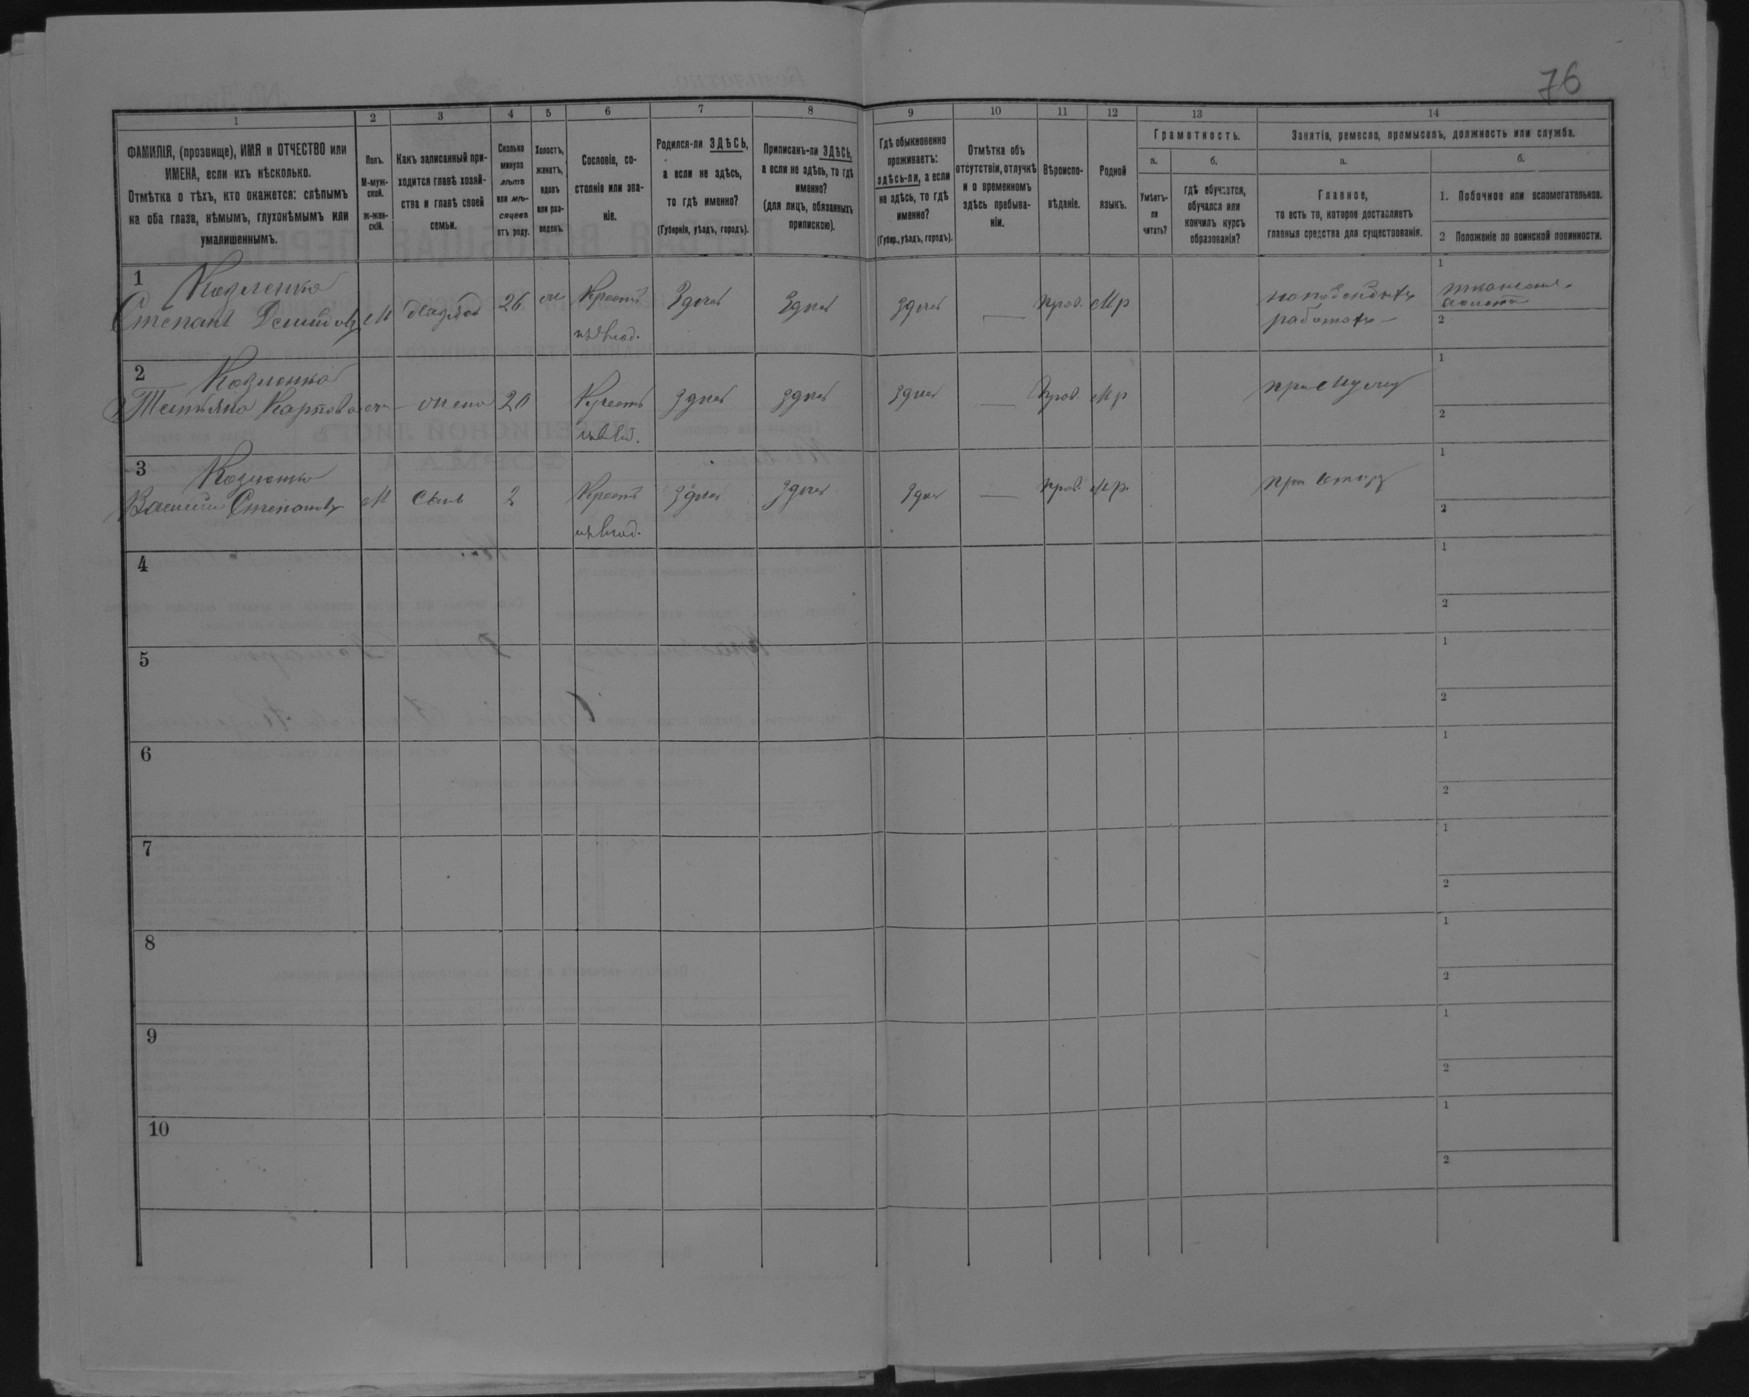 76
1
2
3
4
5
6
7
8
9
10
11
12
13
14
ФАМИЛІЯ, (прозвище), ИМЯ и ОТЧЕСТВО или
ИМЕНА, если ихъ нѣсколько.
Отмѣтка о тѣхъ, кто окажется: слѣпымъ
на оба глаза, нѣмымъ, глухонѣмымъ или
умалишеннымъ.
Полъ.
М-муж-
ской.
Ж-жен-
скій.
Какъ записанный при-
ходится главѣ хозяй-
ства и главѣ своей
семьи.
Сколько
минуло
лѣтъ
или мѣ-
сяцевъ
отъ роду.
Холостъ,
женатъ,
вдовъ
или раз-
веденъ.
Сословіе, со-
стояніе или зва-
ніе.
Родился-ли ЗДѢСЬ,
а если не здѣсь,
то гдѣ именно?
(Губернія, уѣздъ, городъ).
Приписанъ-ли ЗДѢСЬ,
а если не здѣсь, то гдѣ
именно?
(для лицъ, обязанныхъ
припискою).
Гдѣ обыкновенно
проживаетъ:
здѣсь-ли, а если
не здѣсь, то гдѣ
именно?
(Губер., уѣздъ, городъ).
Отмѣтка объ
отсутствіи, отлучкѣ
и о временномъ
здѣсь пребыва-
ніи.
Вѣроиспо-
вѣданіе.
Родной
языкъ.
Грамотность.
а.
б.
Умѣетъ-
ли
читать?
гдѣ обучается,
обучался или
кончилъ курсъ
образованія?
Занятія, ремесло, промыселъ, должность или служба.
а.
б.
Главное,
то есть то, которое доставляетъ
главныя средства для существованія.
1. Побочное или вспомогательное.
2 Положеніе по воинской повинности.
1
Козленко
Степанъ Демидовъ
М
26
Крест.
Здѣсь
Здѣсь
Здѣсь
—
прав.
Мр
1
2
2
Козленко
Татьяна Карпова
жена
20
Крест.
Здѣсь
Здѣсь
Здѣсь
—
прав.
Мр
при мужу
1
2
3
Козленко
Василий Степановъ
М
сынъ
2
Крест.
Здѣсь
Здѣсь
Здѣсь
—
прав.
Мр.
при отцу
1
2
4
1
2
5
1
2
6
1
2
7
1
2
8
1
2
9
1
2
10
1
2